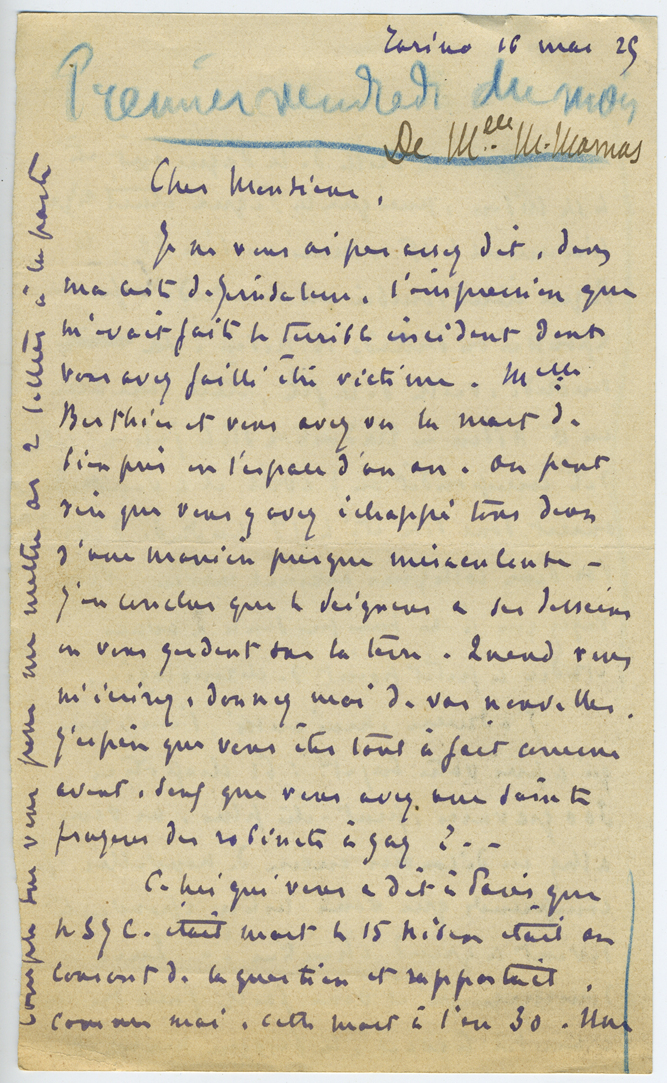 Torino 16 mai 29
Premier vendredi du mois
De Melle M. Mamas
Cher Monsieur,
Je ne vous ai pas assez dit, dans
ma carte de Jérusalem, l'impression que
m'avait faite le terrible incident dont
vous avez failli être victime. Melle
Berthier et vous avez vu la mort de
bien près en l'espace d'un an. On peut
dire que vous y avez échappé tous deux
d'une manière presque miraculeuse –
J'en conclus que le Seigneur a ses desseins
en vous gardant sur la terre. Quand vous
m'écrirez, donnez moi de vos nouvelles.
J'espère que vous êtes tout à fait comme
avant, sauf que vous avez une sainte
frayeur des robinets à gaz ? . .
Celui qui vous a dit à Paris que
N S J C. était mort le 15 Nisan était au
courant de la question et rapportait,
comme moi, cette mort à l'an 30. Une
compte sur vous pour me mettre ces 2 lettres à la poste